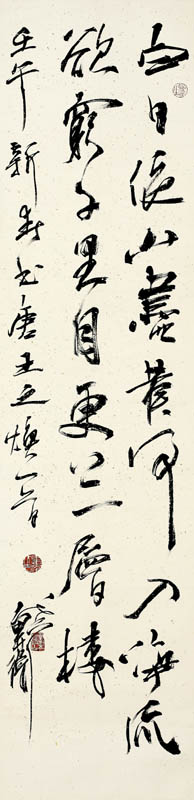 白日依山盡黃河入海流
欲窮千里目更上一層樓
壬午新春书唐王之煥一首